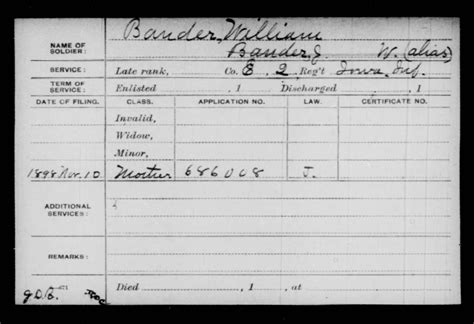 Bander, William
NAME OF SOLDIER:
Bander, J. W. (alias)
SERVICE: Late rank, Co. E, 2 Reg't Iowa Inf.
TERM OF SERVICE: Enlisted , 1 Discharged , 1
DATE OF FILING. CLASS. APPLICATION NO. LAW. CERTIFICATE NO.
Invalid,
Widow,
Minor,
1898 Nov. 10 Mother 686008 J.
ADDITIONAL SERVICES:
REMARKS:
Died , 1 , at